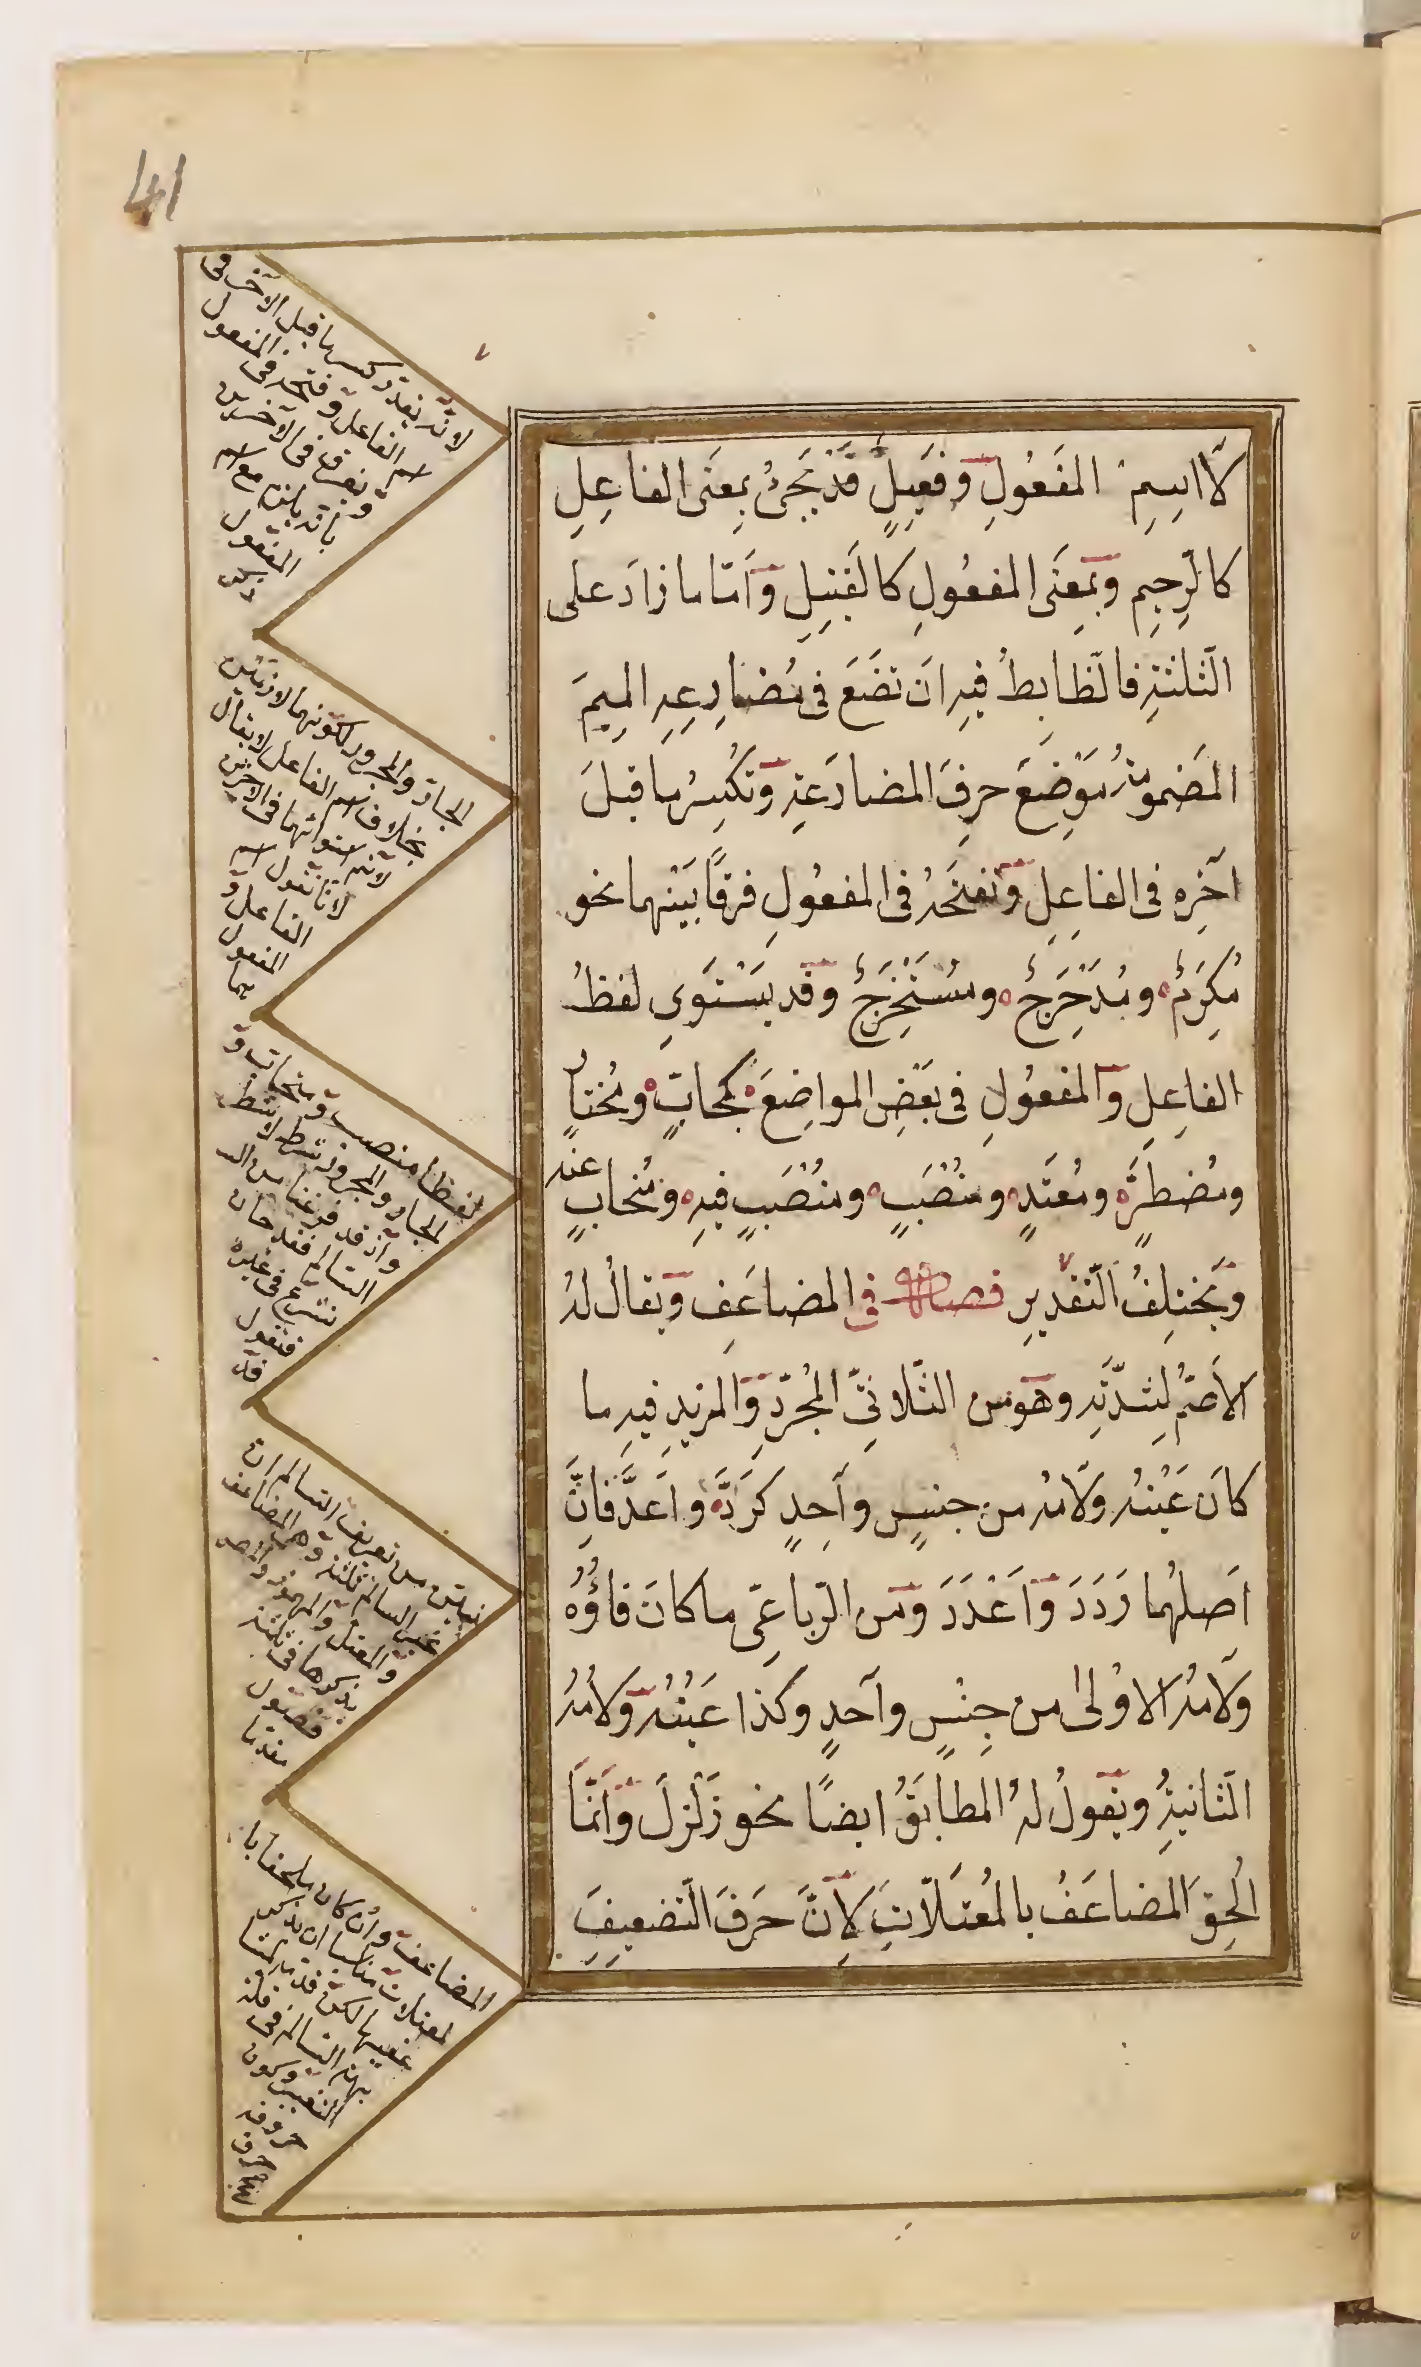 41
لَا اسِمِ المفَعُولِ وَفعَيِلٍ قَدْ يَجَيْ بِمعِنَى الفاعِلِ
كالرّحِيِم وَبمَعِنَى المفعُولِ كالقَتِيلِ وَاَمّا ما زادَ على
الثلثةِ فالضّابِطُ فيهِ انَ تضَعَ فى مُضارِعِهِ المِيمَ
المضَمومةُ مَوْضِعَ حرِفَ المضارَعَةِ وَتكُسِرُ ما قبلَ
آخِرِهِ فى الفاعِلِ وَتفتَحَهُ فى المفعُولِ فرقًا بَيْنهما نحو
مُكِرَمٌ ومُدَحْرِجَ ومُستَخْرِجٌ وَقد يَسْتَوىِ لفظُ
الفاعِلِ وَالمفعُولِ فى بَعَضِ المواضِعَ كمحُابٍّ ومُختارٍ
ومُضطَرٍّ ومُعتَدٍّ ومنُصَبٍّ ومنُصَبٍّ فيهِ ومُنجابٍ عنه
وَيَختلِفُ التّقدِيرِ فصل فى المضاعَفِ وَيقالُ لهُ
الاَصَمُّ لِشدّتِهِ وهَو من الثّلاثِىِّ المُجُرّدِ وَالمزيدِ فيهِ ما
كانَ عَيْنهُ وَلَامُهُ من جنسٍ واَحِدٍ كَرَدَّ واَعَدَّ فاِنَّ
اَصلهُما رَدَدَ وَاَعْدَدَ وَمن الرّباعىِّ ما كانَ فاؤُهُ
وَلَامُهُ الاوُلىٰ من جِنسٍ واَحدٍ وكذا عَيْنُهُ وَلَامُهُ
الثّانيةُ ويَقولُ لهُ المطابَقُ ايضًا نحو زَلْزلَ وَاَنّما
اُلحِقَ المضُاعَفُ بالمُعتَلّاتِ لِاَنَّ حَرَفَ التّضعِيِفَ
لانّه يقدّر كسر ما قبل الآخر فى
اسم الفاعل وفتحه فى المفعول
ويفرق فى الآخرين
بانّه يلزم مع اسم
المفعول
ذكر
الجارّ والمجرور لكونهما لازمتين
بخلاف اسم الفاعل لا يقال
لانم استوائهما فى الاخرين
لانّا نقول اسم
الفاعل و
المفعول
هما
لفظا منصبّ ومنجاب و
الجار والمجرور شرط لا شطر
واذ قد فرغنا من الـ
السالم فقد حان ان
نشرع فى غيره
فنقول
قد
نبيّن من تعريف السالم ان
غير السالم ثلثة وهى المضاعف
والمعتل والمهموز والمصـ
يذكرها فى ثلثة
فصول
مقدما
المضاعف وان كان ملحقا با
لمعتلات مناسبا ان يذكر
عقيبها لكن قدّمه لمشا
بهته السالم فى قلّة
التغيير وكون
حروفه
حرف
صحيح